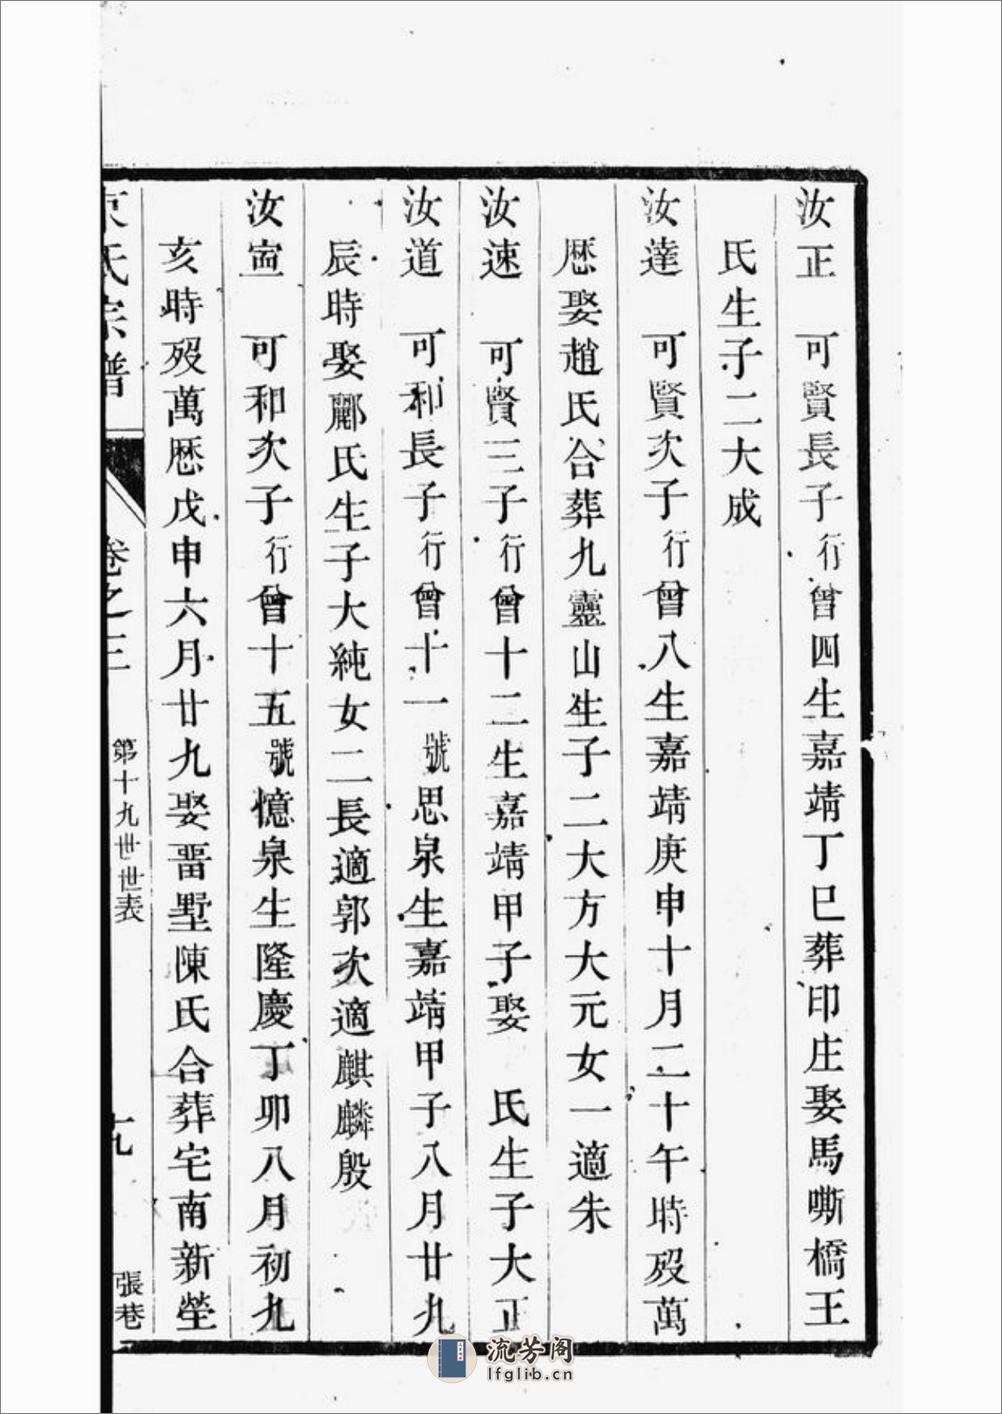 汝正　可賢長子行曾四生嘉靖丁巳葬印庄娶馬嘶橋王
氏生子二大成
汝達　可賢次子行曾八生嘉靖庚申十月二十午時殁萬
厯娶趙氏合葬九靈山生子二大方大元女一適朱
汝速　可賢三子行曾十二生嘉靖甲子娶　氏生子大正
汝道　可和長子行曾十一號思泉生嘉靖甲子八月廿九
辰時娶酈氏生子大純女二長適郭次適麒麟殷
汝寗　可和次子行曾十五號憶泉生隆慶丁卯八月初九
亥時殁萬厯戊申六月廿九娶畱墅陳氏合葬宅南新塋
氏宗譜
卷之三
第十九世世表
十九
張巷
流芳阁
lfglib.cn